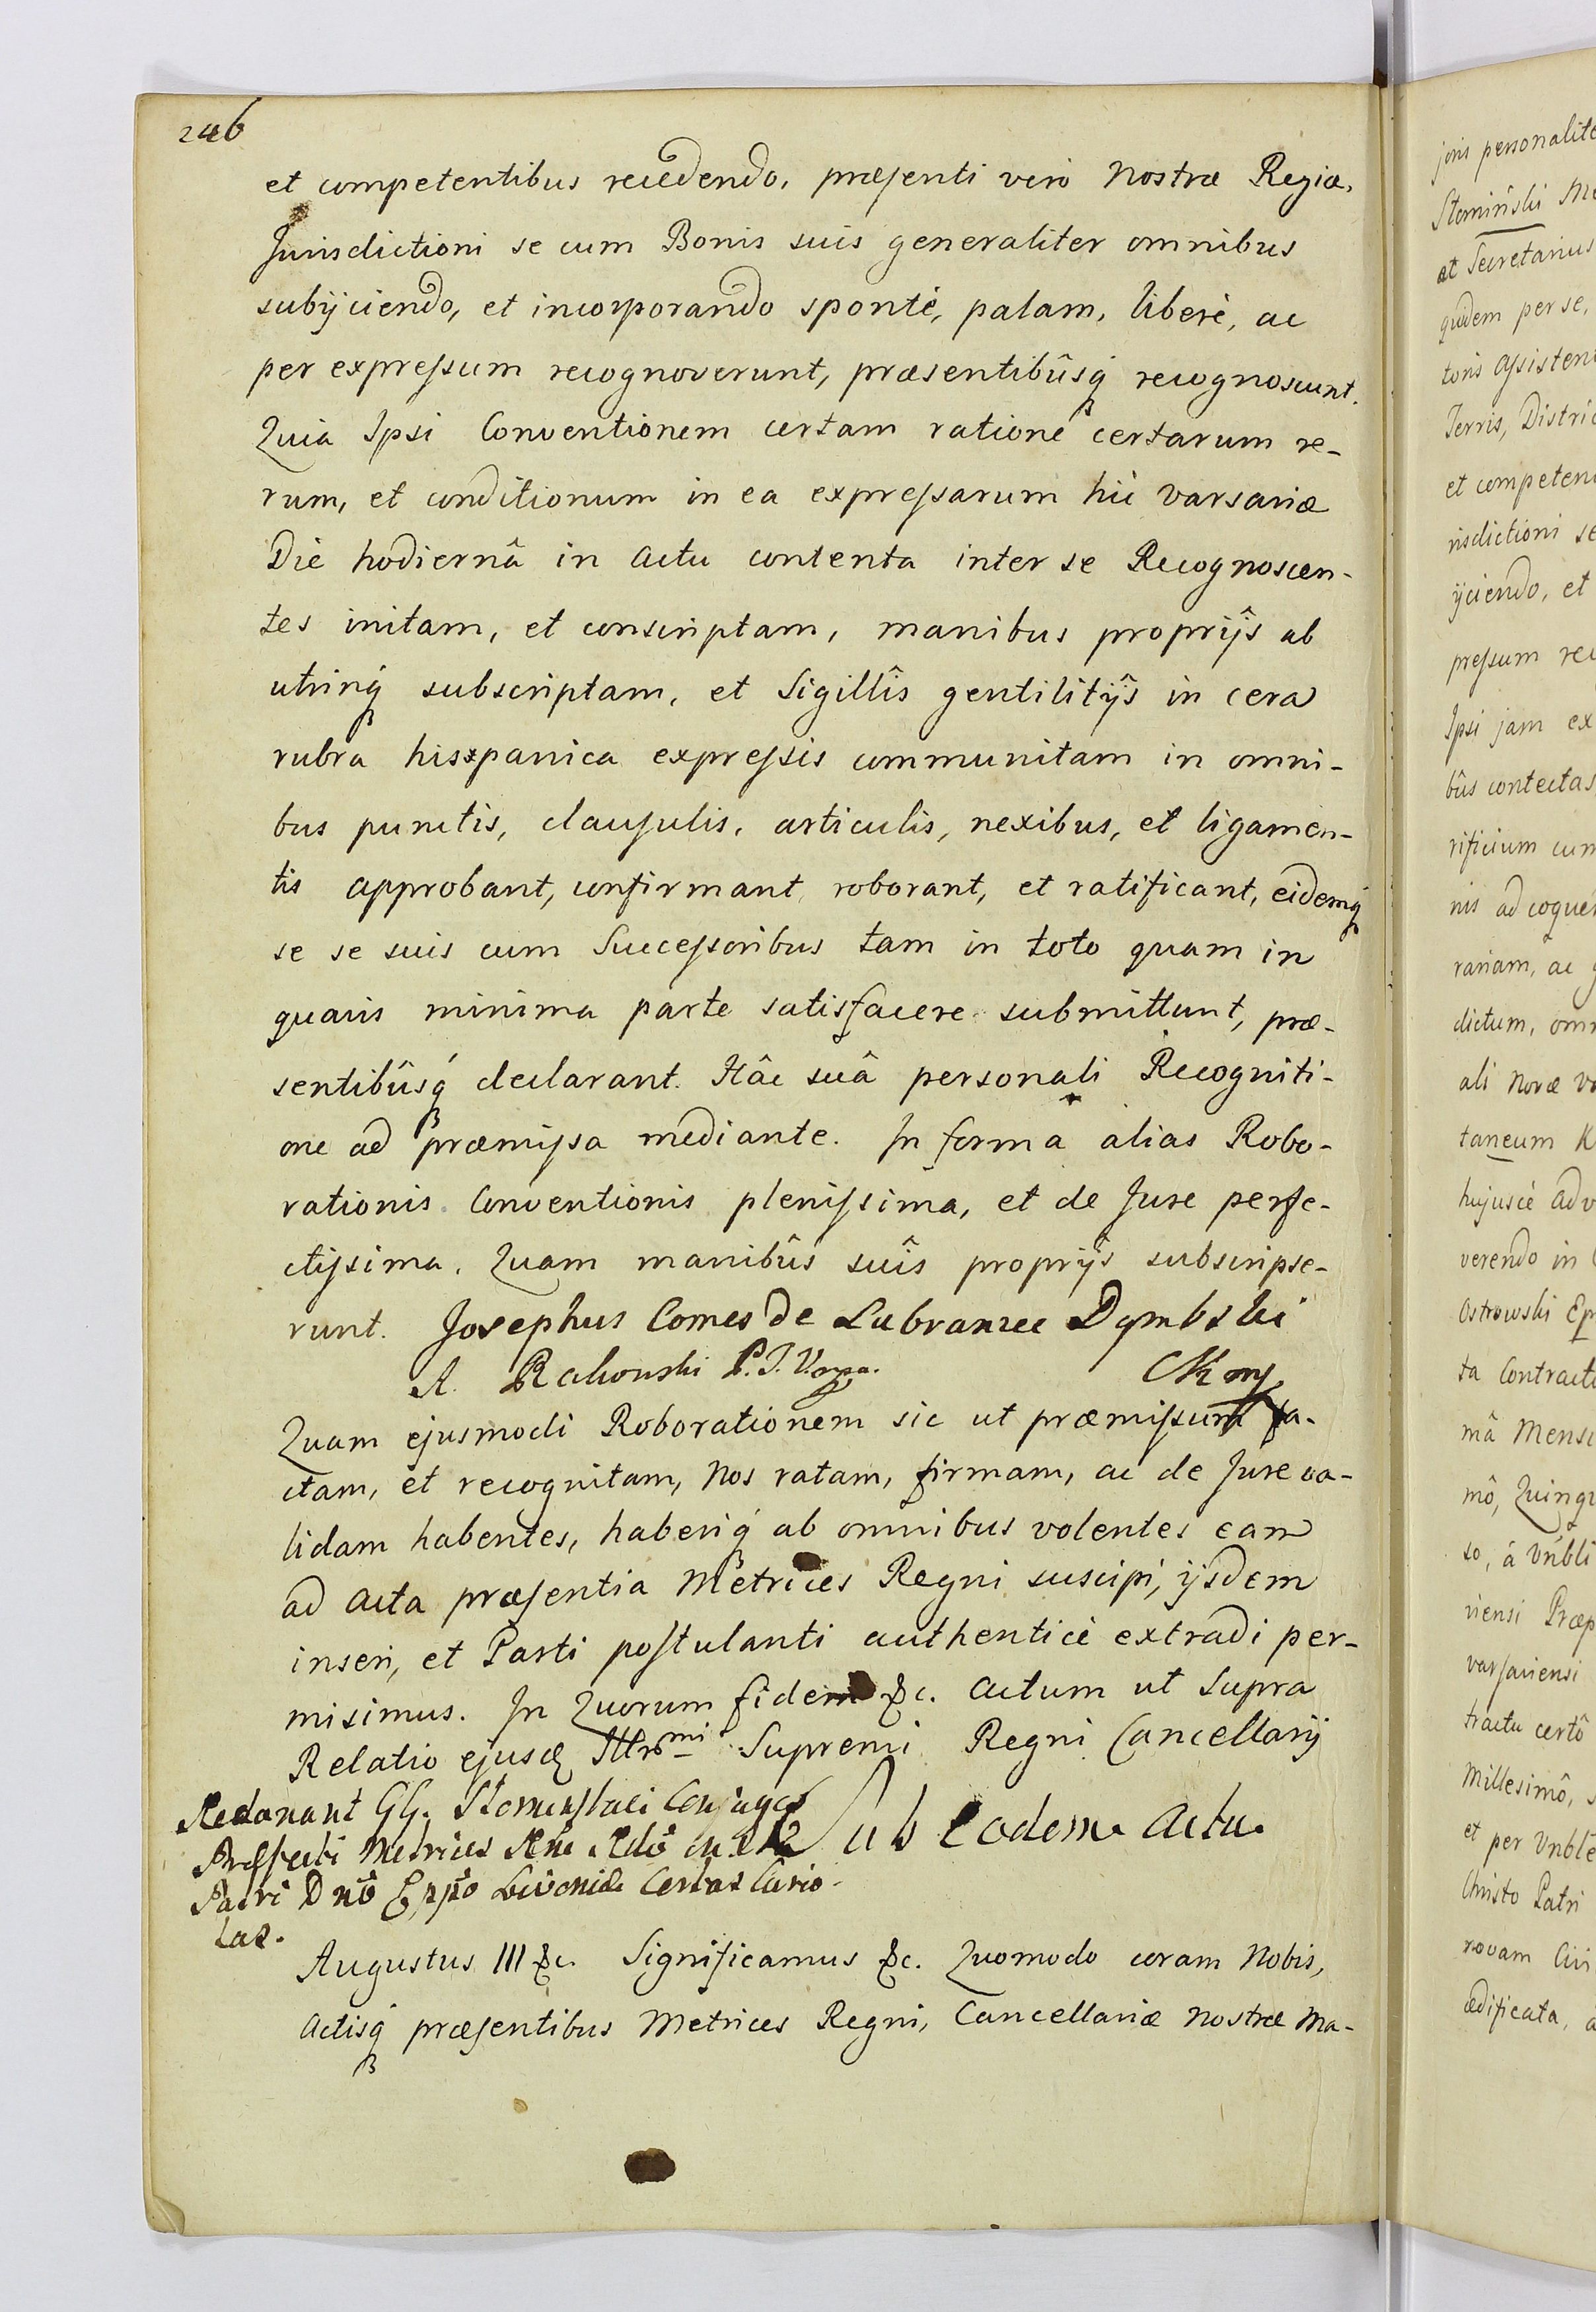 246
et competentibus recedendo, præsenti vero Nostræ Regiæ,
Jurisdictioni se cum Bonis suis generaliter omnibus
subijciendo, et incorporando spontè, palam, liberè, ac
per expressum recognoverunt, præsentibûsq́ recognoscunt.
Quia Ipsi Conventionem certam rationè certarum re-
rum, et conditionum in ea expressarum hìc Varsaviæ
Die hodiernâ in actu contenta inter se Recognoscen-
tes initam, et conscriptam, manibus proprijs ab
utrinq́ subscriptam, et Sigillîs gentilitijs in cera
rubra hisxpanica expressis communitam in omni-
bus punctis, clausulis, articulis, nexibus, et ligamen-
tis approbant, confirmant, roborant, et ratificant, eidemq́
se se suis cum Successoribus tam in toto quam in
quavis minima parte satisfacere submittunt, præ-
sentibûsq́ declarant. Hâc suâ personali Recogniti-
one ad præmissa mediante. In forma alias Robo-
rationis Conventionis plenissima, et de Jure perfe-
ctissima. Quam manibûs suîs proprijs subscripse-
runt. Josephus Comes de Lubraniec Dąmbski
A. Rakowski P.
Quam ejusmodi Roborationem sic ut præmissum fa-
ctam, et recognitam, Nos ratam, firmam, ac de Jure va-
lidam habentes, haberiq́ ab omnibus volentes eam
ad acta præsentia Metrices Regni suscipi, ijsdem
inseri, et Parti postulanti authenticè extradi per-
misimus. In Quorum fidem &c. Actum ut Supra
Relatio ejusdē Illrōmi Supremi Regni Cancellarij
GG. Słominskici Conjuges
Præfecti Metrices
Patri Dnō Eppō Livoniæ Certas Curio-
las.
Sub eodem Actu.
Augustus III &c. Significamus &c. Quomodo coram Nobis,
Actisq́ præsentibus Metrices Regni, Cancellariæ Nostræ Ma-
joris personalite
Słomiński Me
at Secretarius
quidem per se,
toris assistent
Terris, Distric
et competen
risdictioni se
ijciendo, et
pressum rec
Ipsi jam ex
bûs contectas
rificium cum
nis ad coquen
rariam, ac g
dictum, omn
ali novæ
taneum K
hujuscè adv
verendo in
Ostrowski Ep
ta Contractu
mâ Mensi
mô, Quingu
so, á Vnbli
viensi Præp
varsaviensi
tractu certô
Millesimô, s
et per Vnble
Christo Patri
novam
ædificata, a